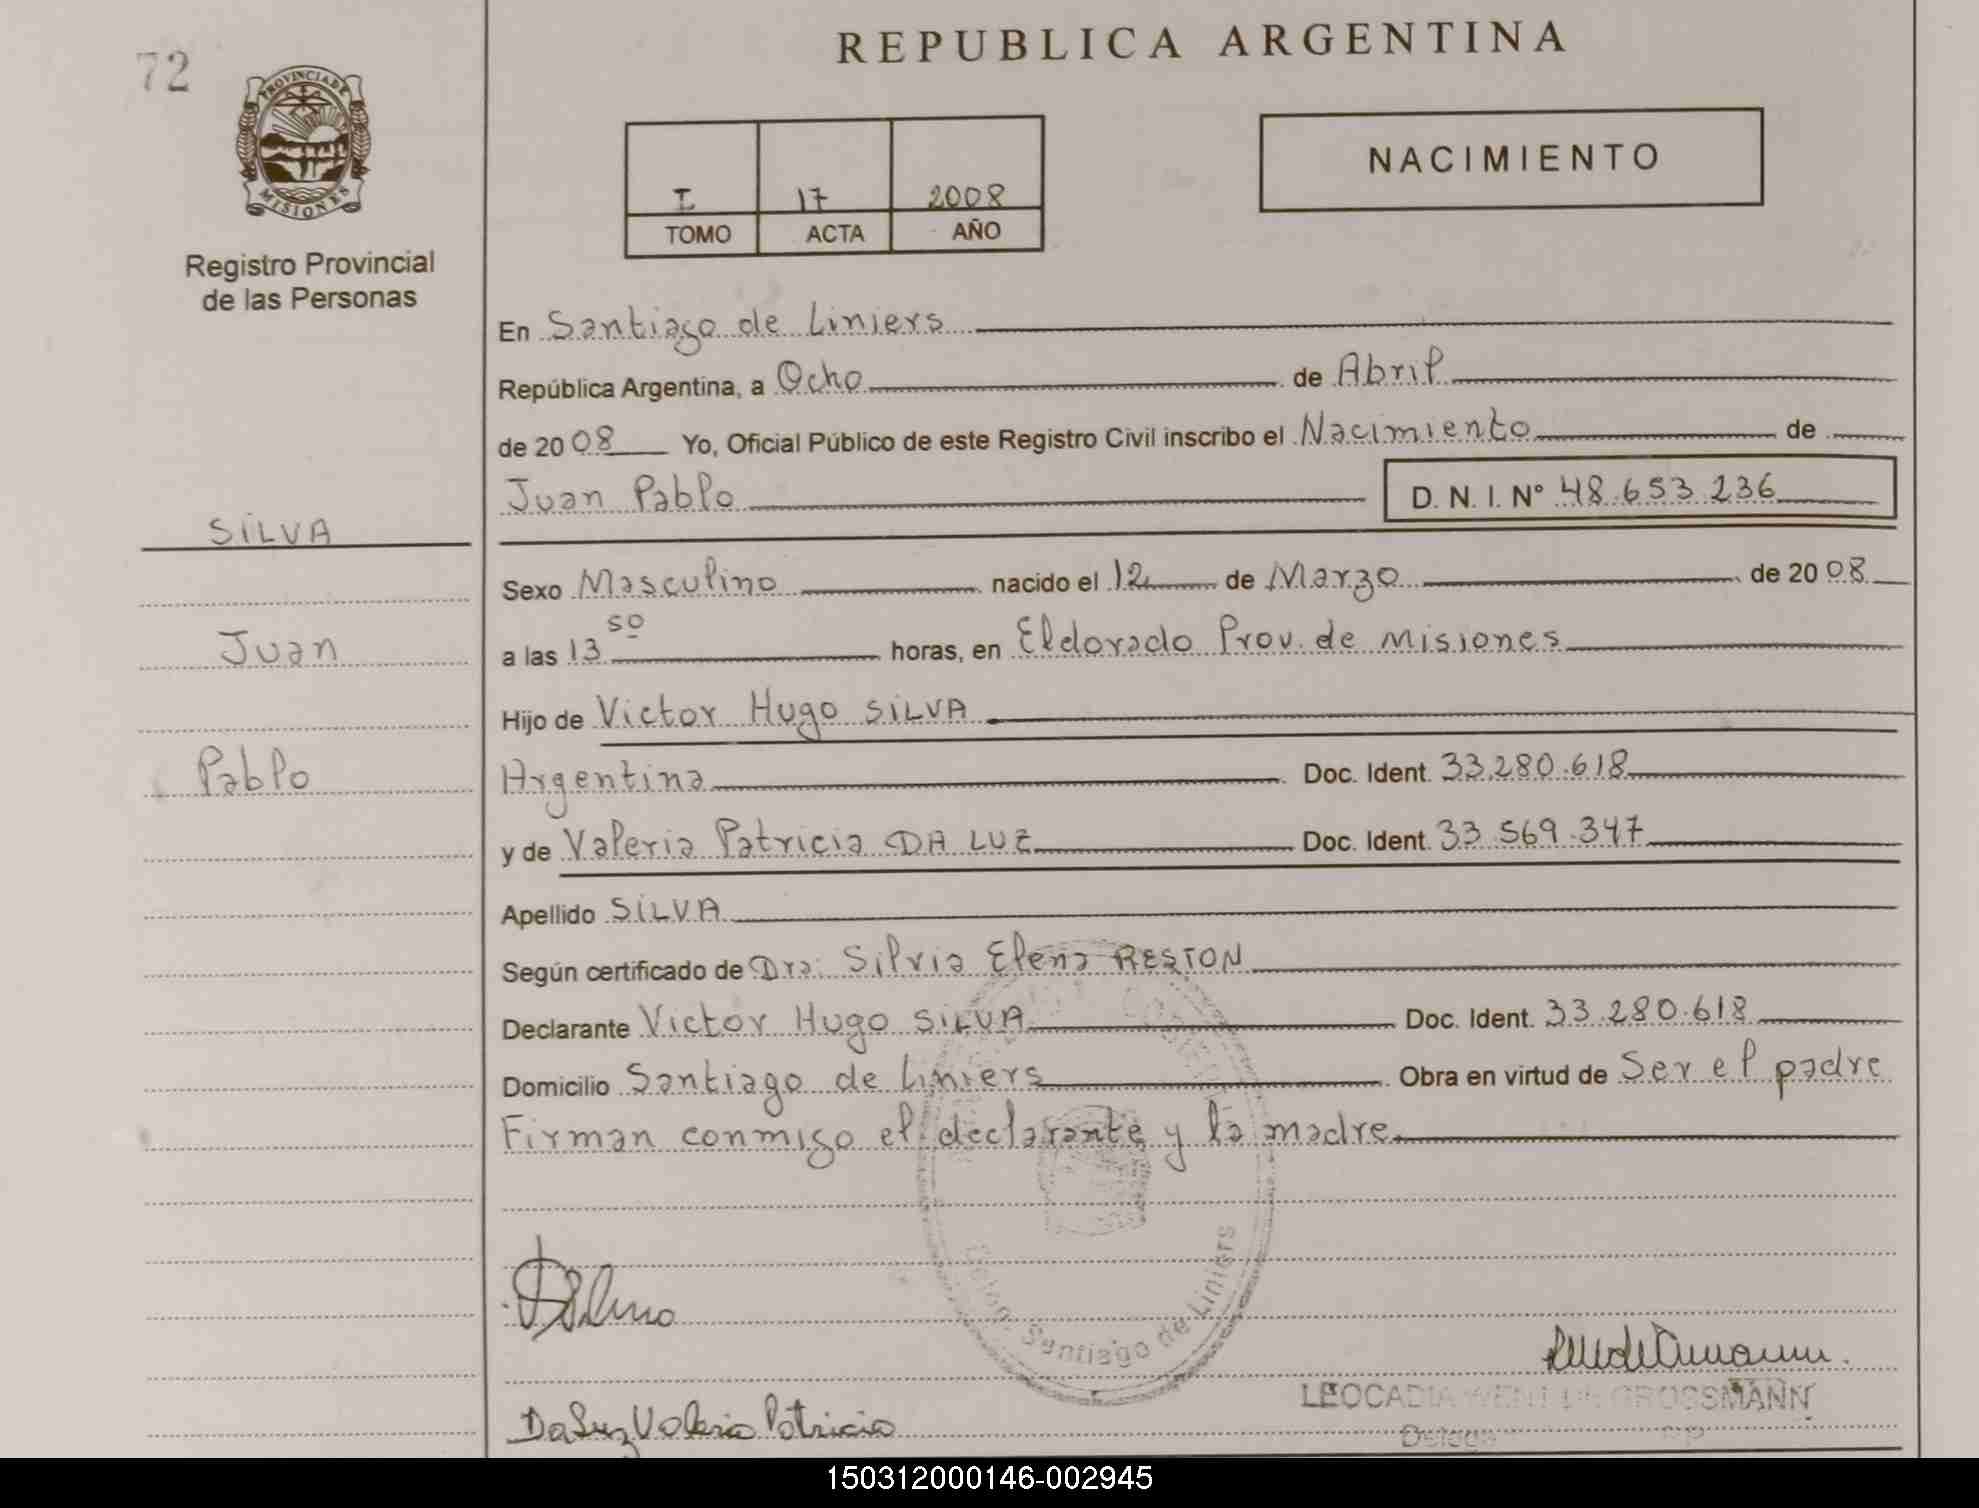 72
PROVINCIA DE
MISIONES
Registro Provincial
de las Personas
REPUBLICA ARGENTINA
I 17 2008
TOMO ACTA AÑO
NACIMIENTO
En Santiago de Liniers
República Argentina, a Ocho de Abril
de 2008 Yo, Oficial Público de este Registro Civil inscribo el Nacimiento de
Juan Pablo D. N. I. Nº 48.653.236
SILVA
Sexo Masculino nacido el 12 de Marzo de 2008
Juan
a las 13 50 horas, en Eldorado Prov. de Misiones
Hijo de Victor Hugo SILVA
Pablo
Argentina Doc. Ident. 33.280.618
y de Valeria Patricia DA LUZ Doc. Ident. 33.569.347
Apellido SILVA
Según certificado de Dra. Silvia Elena RESTON
Declarante Victor Hugo SILVA Doc. Ident. 33.280.618
Domicilio Santiago de Liniers Obra en virtud de Ser el padre
Firman conmigo el declarante y la madre
Santiago de Liniers
LEOCADIA WENT DE GROSSMANN
Da Luz Valeria Patricia
150312000146-002945